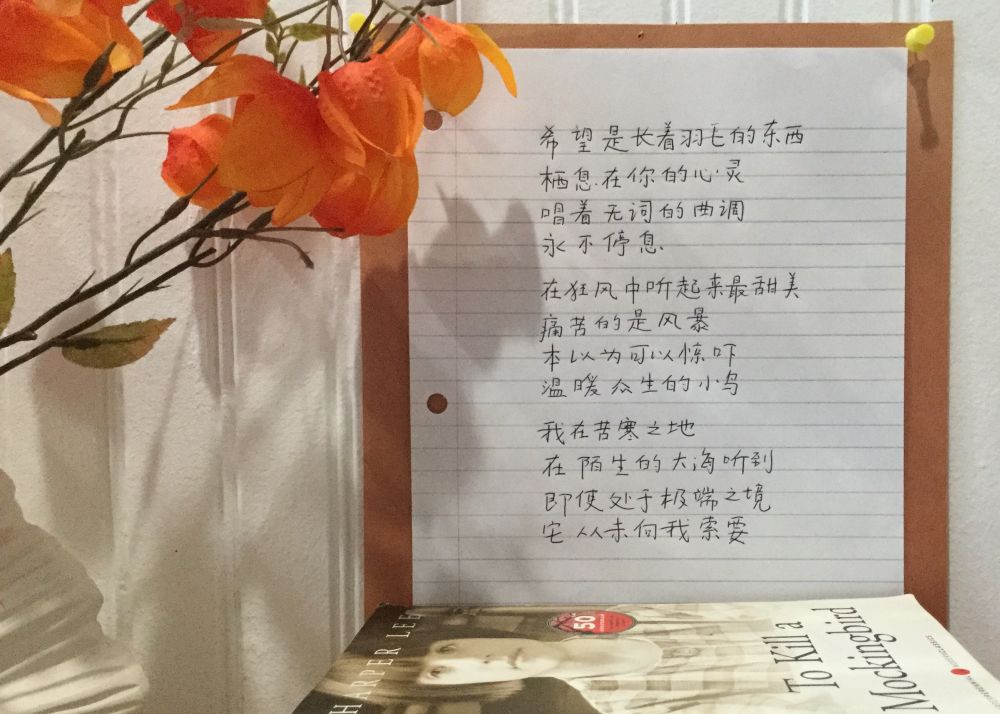 希望是长着羽毛的东西
栖息在你的心灵
唱着无词的曲调
永不停息
在狂风中听起来最甜美
痛苦的是风暴
本以为可以惊吓
温暖众生的小鸟
我在苦寒之地
在陌生的大海听到
即使处于极端之境
它从未向我索要
HARPER LEE
50
To Kill a
Mockingbird